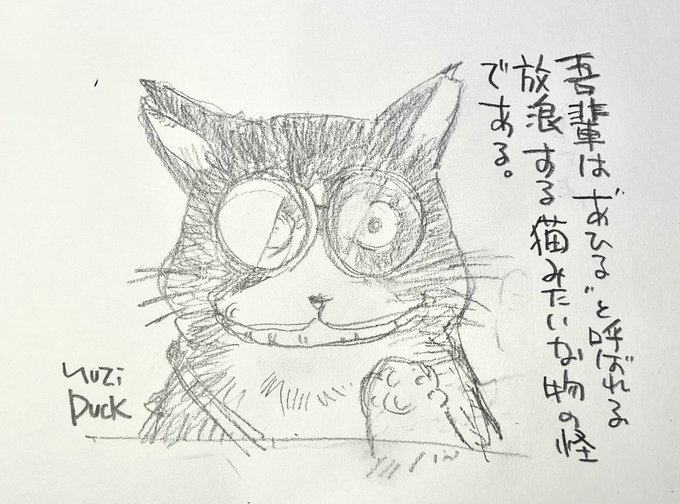 吾輩は"あひる"と呼ばれる
放浪する猫みたいな物の怪
である。
YUZi
DUCK